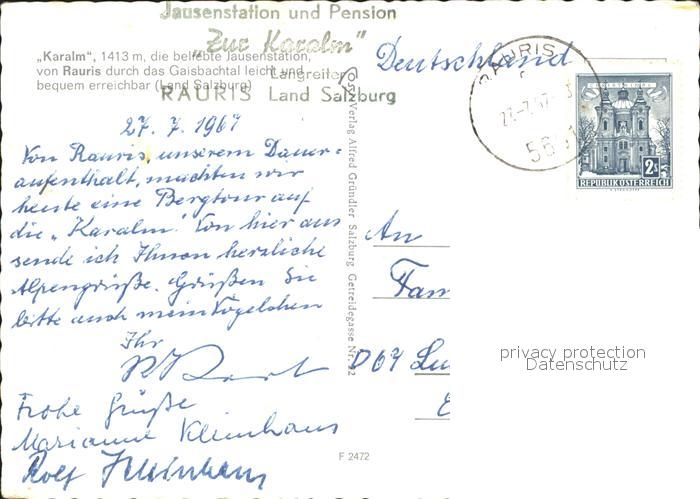 Jausenstation und Pension
„Zur Karalm"
Langreiter
RAURIS Land Salzburg
„Karalm", 1413 m, die beliebte Jausenstation,
von Rauris durch das Gaisbachtal leicht und
bequem erreichbar (Land Salzburg)
Deutschland
RAURIS
27.-7.67
REPUBLIK ÖSTERREICH
27. 7. 1967
Von Rauris, unserem Dauer-
aufenthalt, machten wir
heute eine Bergtour auf
die „Karalm". Von hier aus
sende ich Ihnen herzliche
Alpengrüße. Grüßen Sie
bitte auch mein Vögelchen
Ihr
Frohe Grüße
Marianne Kleinhans
Rolf Kleinhans
Verlag Alfred Gründler Salzburg, Getreidegasse Nr. 22
An
Fam
D 67 Lu
F 2472
privacy protection
Datenschutz